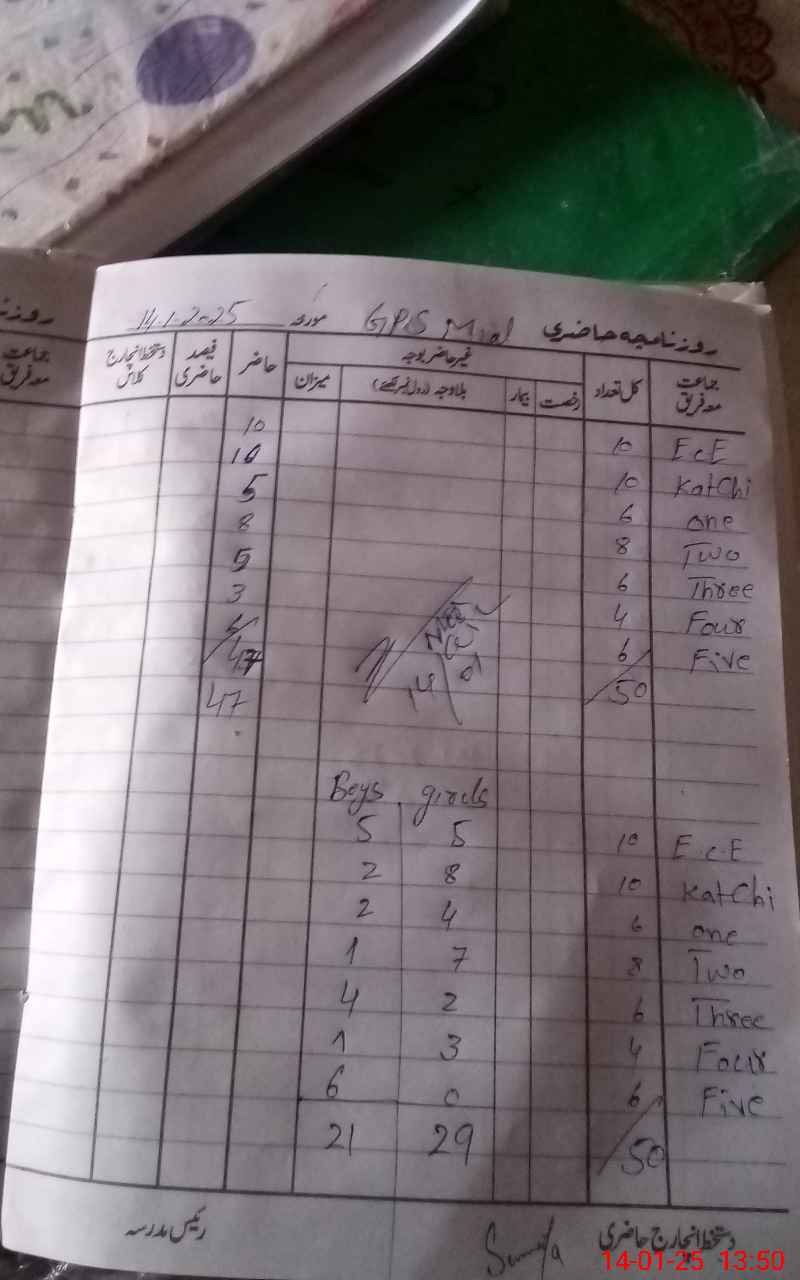 روزنامچہ حاضری GPS Mial مورخہ 14.1.2025
جماعت معہ فریق کل تعداد غیر حاضر بوجہ حاضر فیصد حاضری دستخط انچارج کلاس
رخصت بیمار بلاوجہ (رول نمبر لکھئے) میزان
ECE 10 10
KatChi 10 10
one 6 5
Two 8 8
Three 6 5
Four 4 3
Five 6
50 47
47
14/01
Boys girls
ECE 10 5 5
KatChi 10 8 2
one 6 4 2
Two 8 7 1
Three 6 2 4
Four 4 3 1
Five 6 0 6
50 29 21
دستخط انچارج حاضری رئیس مدرسہ
روزنا
جماعت
معہ فریق
14-01-25 13:50